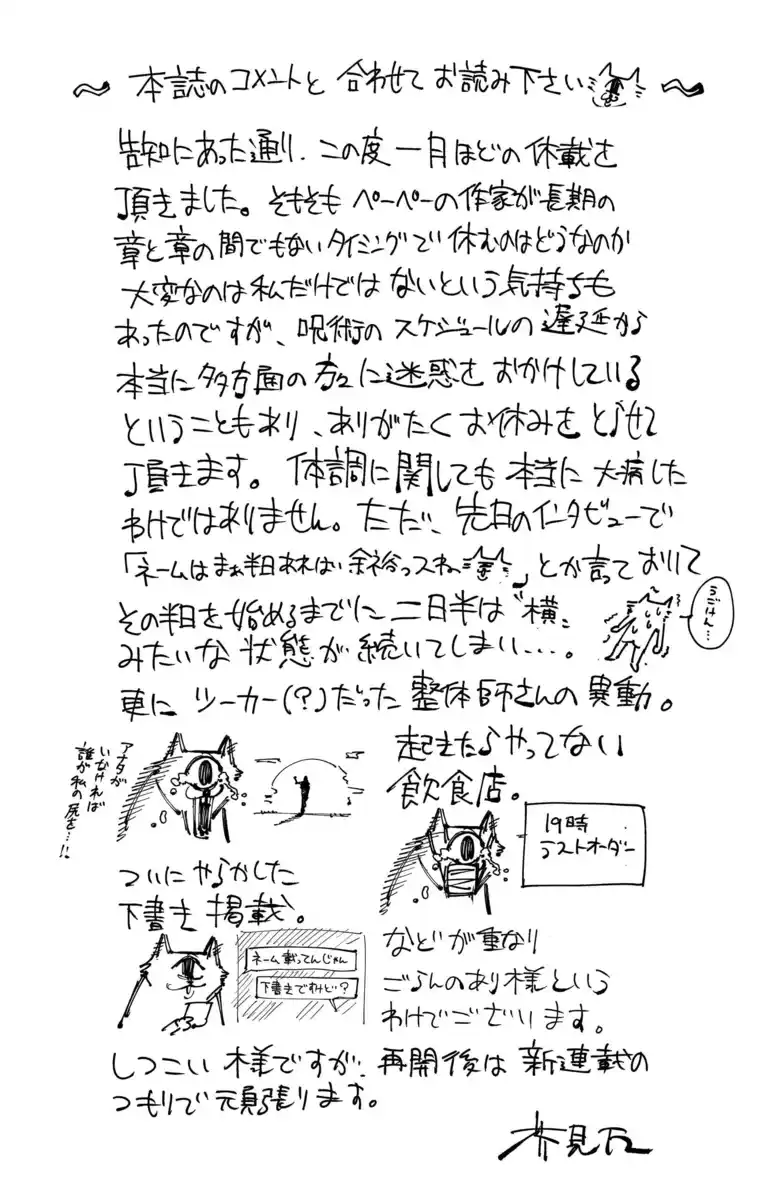 ~ 本誌のコメントと合わせてお読み下さい ~
告知にあった通り、この度一月ほどの休載を
頂きました。そもそもペーペーの作家が長期の
章と章の間でもないタイミングで休むのはどうなのか
大変なのは私だけではないという気持ちも
あったのですが、呪術のスケジュールの遅延から
本当に多方面の方々に迷惑をおかけしている
ということもあり、ありがたくお休みをとらせて
頂きます。体調に関しても本当に大病した
わけではありません。ただ、先日のインタビューで
「ネームはまぁ半日あれば余裕っスねー」とか言っておいて
その半日を始めるまでに二日半は〝横〟
みたいな状態が続いてしまい…。
うごけん…
更にツーカー(?)だった整体師さんの異動。
アナタが
いなければ
誰が私の尻を…!!
起きたらやってない
飲食店。
19時
ラストオーダー
ついにやらかした
下書き掲載。
ネーム載ってんじゃん
下書きですけど?
などが重なり
ごらんのあり様という
わけでございます。
しつこい様ですが、再開後は新連載の
つもりで頑張ります。
芥見下々